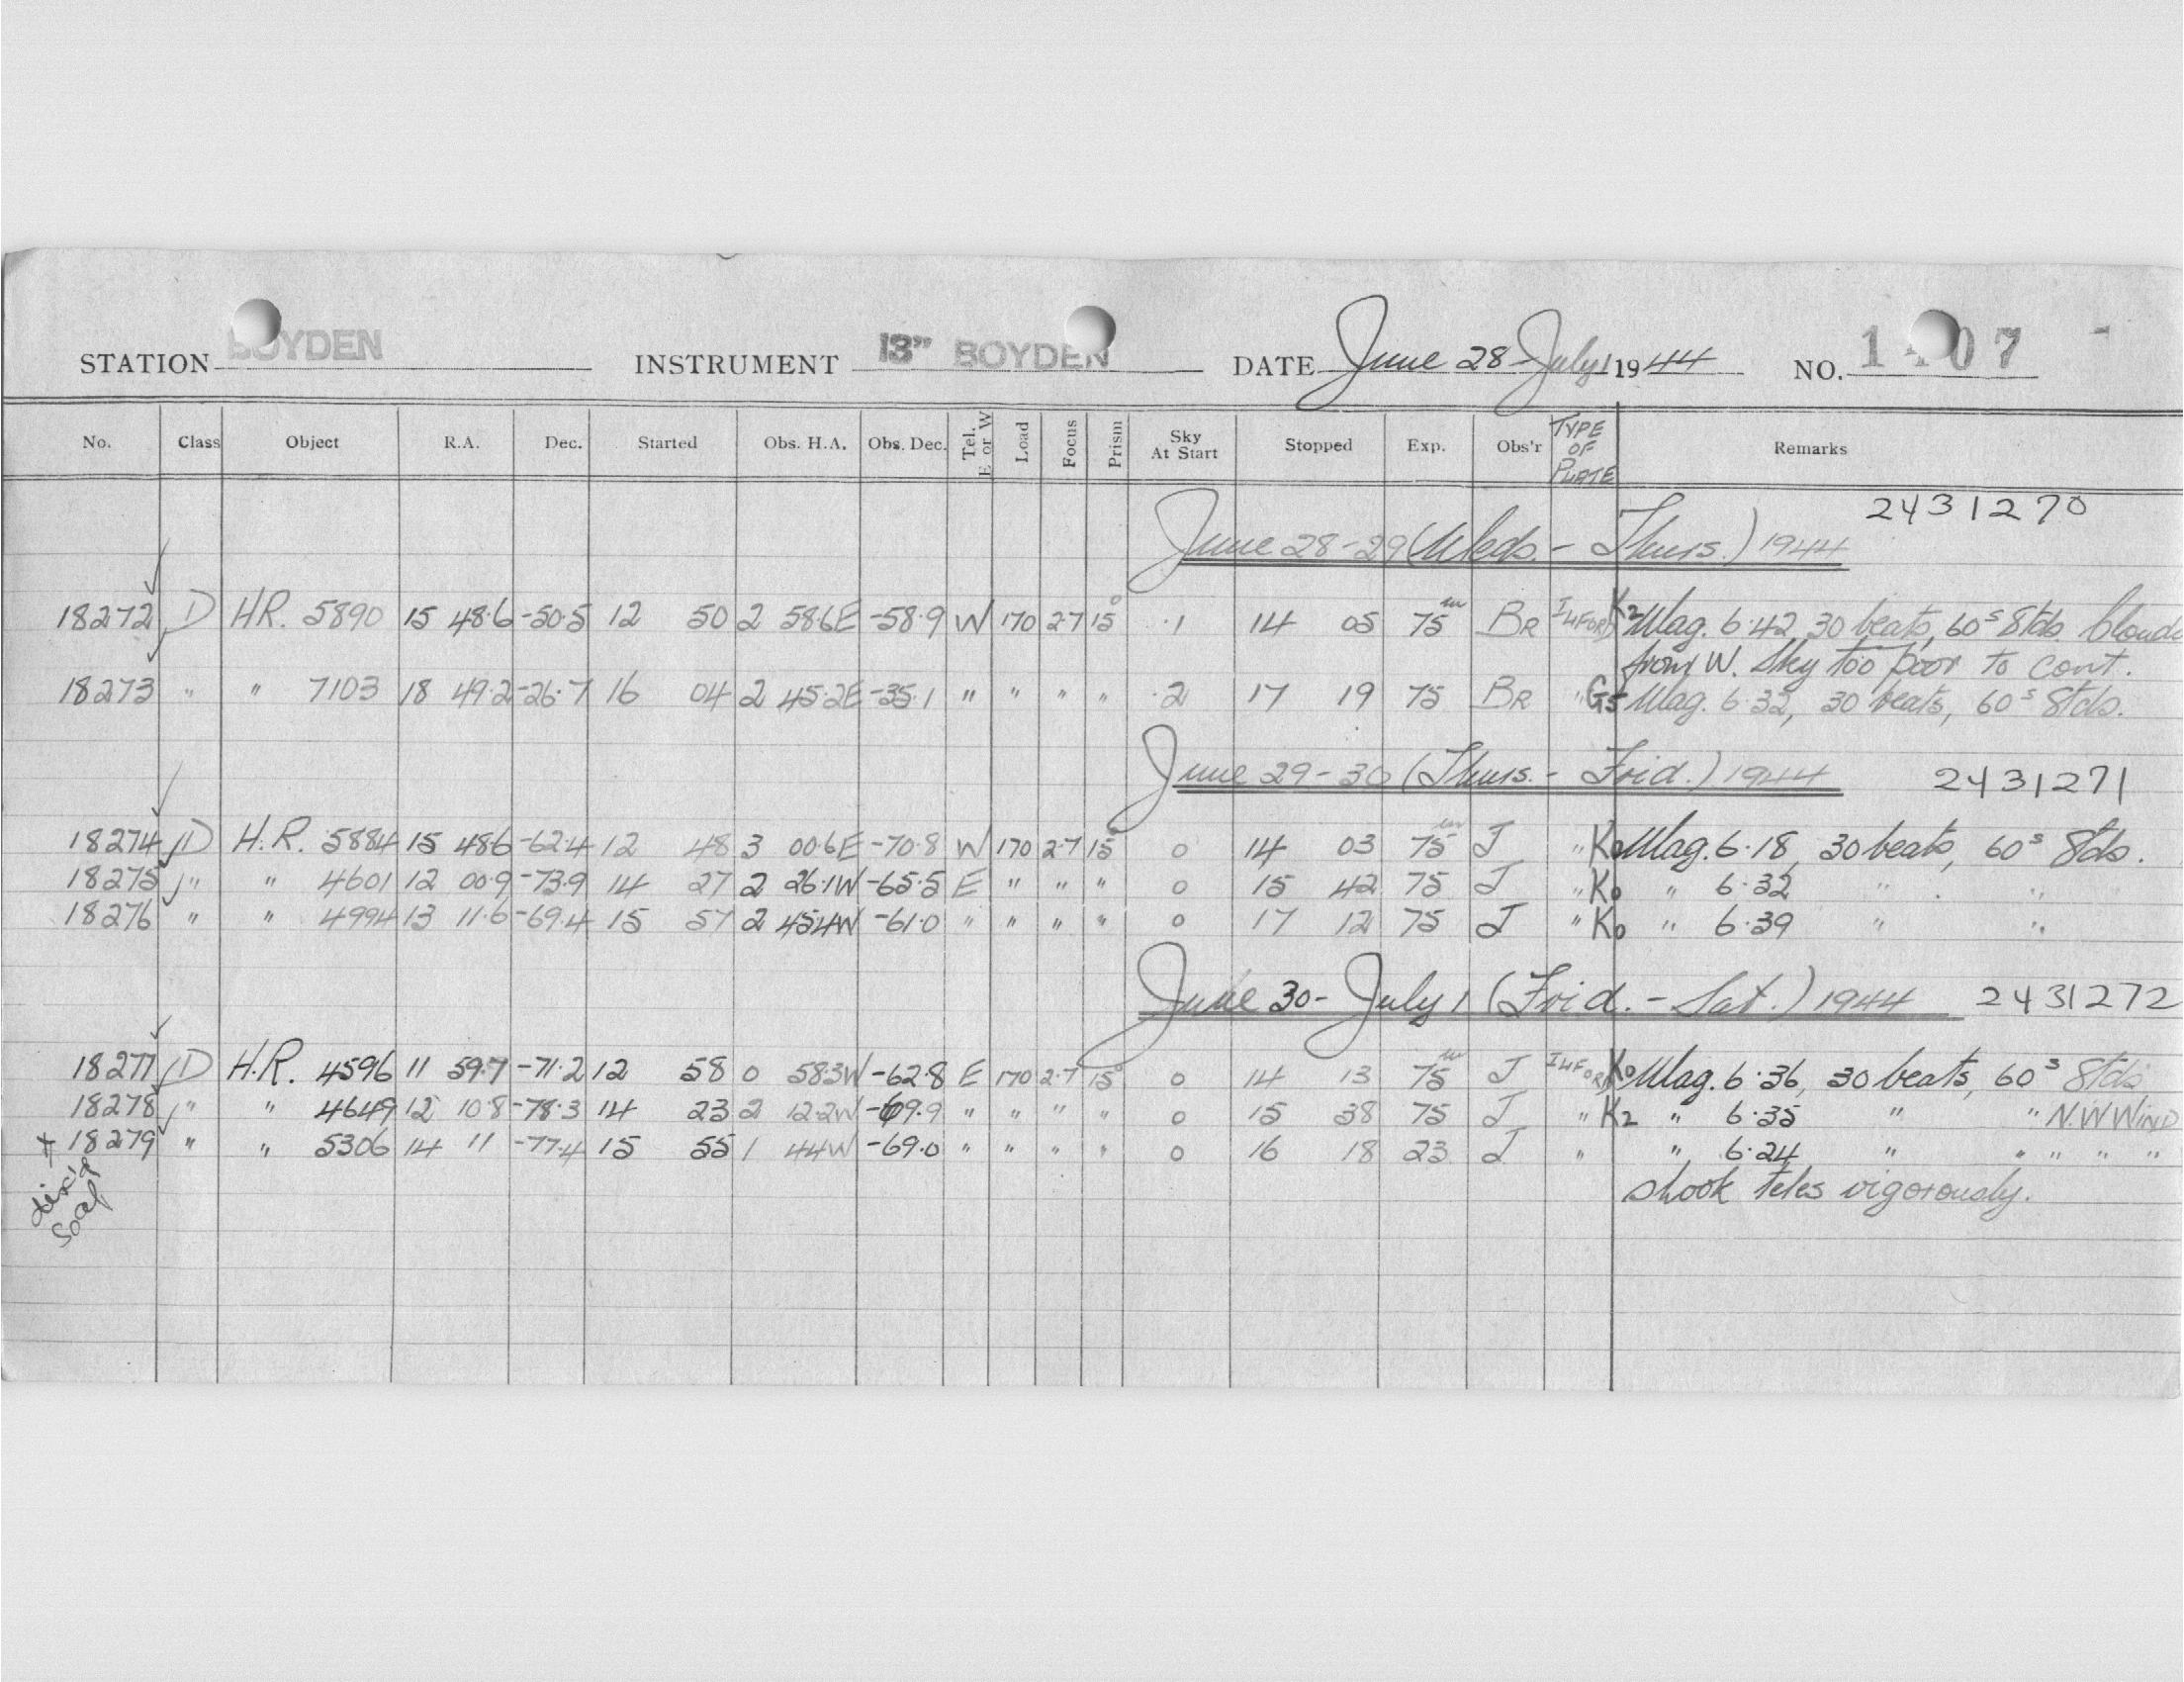 STATION BOYDEN INSTRUMENT 13" BOYDEN DATE June 28-July 1 1944 NO. 1407
No. Class Object R.A. Dec. Started Obs. H.A. Obs. Dec. Tel. E or W Load Focus Prism Sky At Start Stopped Exp. Obs'r TYPE OF PLATE Remarks
2431270
June 28-29 (Weds. - Thurs.) 1944
18272 D HR. 5890 15 48.6 -50.5 12 50 2 58.6E -58.9 W 170 2.7 15° .1 14 05 75m BR ILFORD K2 Mag. 6.42, 30 beats, 60s Stds. Clouds
from W. Sky too poor to cont.
18273 " " 7103 18 49.2 -26.7 16 04 2 45.2E -35.1 " " " " .2 17 19 75 BR " G5 Mag. 6.32, 30 beats, 60s Stds.
June 29-30 (Thurs. - Frid.) 1944 2431271
18274 D H.R. 5884 15 48.6 -62.4 12 48 3 00.6E -70.8 W 170 2.7 15° 0 14 03 75m J " K0 Mag. 6.18, 30 beats, 60s Stds.
18275 " " 4601 12 00.9 -73.9 14 27 2 26.1W -65.5 E " " " 0 15 42 75 J " K0 " 6.32 " "
18276 " " 4994 13 11.6 -69.4 15 57 2 45.4W -61.0 " " " " 0 17 12 75 J " K0 " 6.39 " "
June 30- July 1 (Frid. - Sat.) 1944 2431272
18277 D H.R. 4596 11 59.7 -71.2 12 58 0 58.3W -62.8 E 170 2.7 15° 0 14 13 75m J ILFORD K0 Mag. 6.36, 30 beats, 60s Stds
18278 " " 4649 12 10.8 -78.3 14 23 2 12.2W -69.9 " " " " 0 15 38 75 J " K2 " 6.35 " " N.W WIND
+ 18279 " " 5306 14 11 -77.4 15 55 1 44W -69.0 " " " " 0 16 18 23 J " " 6.24 " " " " "
shook teles vigorously.